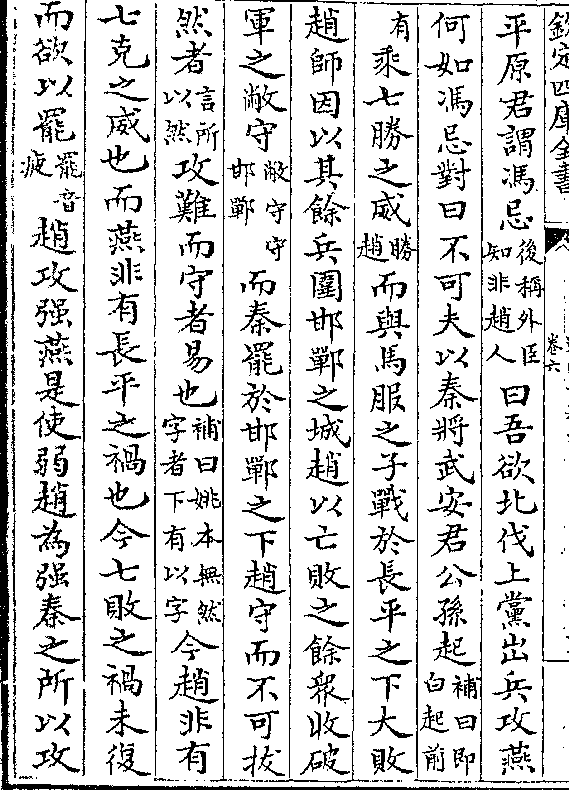 欽定四庫全書
卷六
平原君謂馮忌後稱外臣知非趙人曰吾欲北伐上黨出兵攻燕
何如馮忌對曰不可夫以秦將武安君公孫起補曰即白起前
有乘七勝之威勝趙而與馬服之子戰於長平之下大敗
趙師因以其餘兵圍邯鄲之城趙以亡敗之餘衆收破
軍之敝守敝守守邯鄲而秦罷於邯鄲之下趙守而不可拔
然者言所以然攻難而守者易也補曰姚本無然字者下有以字今趙非有
七克之威也而燕非有長平之禍也今七敗之禍未復
而欲以罷罷音疲趙攻强燕是使弱趙為强秦之所以攻